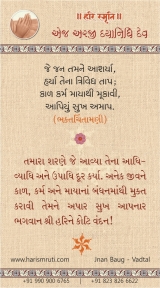 ॥ हरि स्मृति ॥
એજ અરજી દયાનિધિ દેવ
જે જન તમને આશર્યા,
હર્યા તેના ત્રિવિધ તાપ;
કાળ કર્મ માયાથી મૂકાવી,
આપિયું સુખ અમાપ.
(ભક્તચિંતામણી)
તમારા શરણે જે આવ્યા તેના આધિ-
વ્યાધિ અને ઉપાધિ દૂર કર્યા. અનેક જીવને
કાળ, કર્મ અને માયાનાં બંધનમાંથી મુક્ત
કરાવી તેમને અપાર સુખ આપનાર
ભગવાન શ્રી હરિને કોટિ વંદન!
www.harismruti.com
Jnan Baug - Vadtal
+91 990 900 6765
+91 823 826 6622